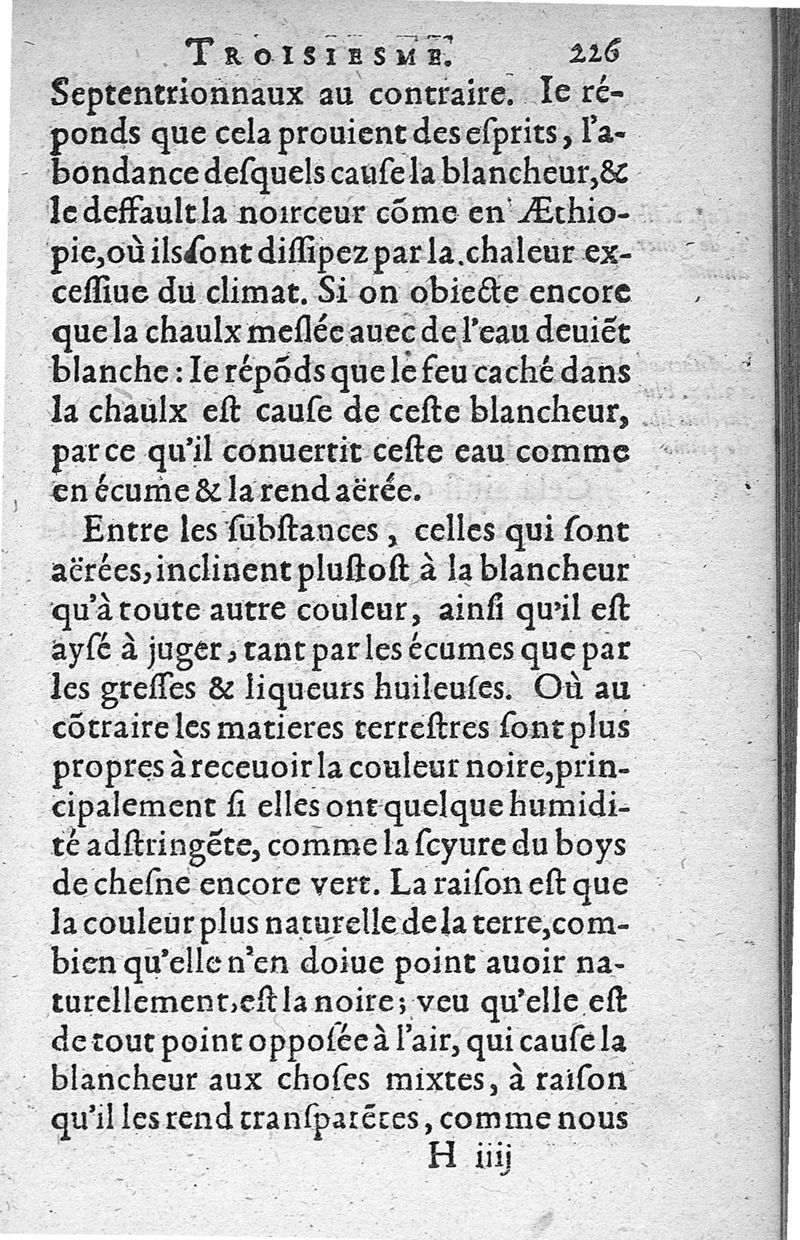 TROISIESME. 226
Septentrionnaux au contraire. Ie ré-
ponds que cela prouient des eſprits, l'a-
bondance deſquels cauſe la blancheur, &
le deffault la noirceur cõme en Æthio-
pie, où ils ſont diſſipez par la chaleur ex-
ceſſiue du climat. Si on obiecte encore
que la chaulx meſlée auec de l'eau deuiẽt
blanche : Ie répõds que le feu caché dans
la chaulx eſt cauſe de ceſte blancheur,
parce qu'il conuertit ceſte eau comme
en écume & la rend aërée.
Entre les ſubſtances, celles qui ſont
aërées, inclinent pluſtoſt à la blancheur
qu'à toute autre couleur, ainſi qu'il eſt
ayſé à juger, tant par les écumes que par
les greſſes & liqueurs huileuſes. Où au
cõtraire les matieres terreſtres ſont plus
propres à receuoir la couleur noire, prin-
cipalement ſi elles ont quelque humidi-
té adſtringẽte, comme la ſcyure du boys
de cheſne encore vert. La raiſon eſt que
la couleur plus naturelle de la terre, com-
bien qu'elle n'en doiue point auoir na-
turellement, eſt la noire; veu qu'elle eſt
de tout point oppoſée à l'air, qui cauſe la
blancheur aux choſes mixtes, à raiſon
qu'il les rend tranſparẽtes, comme nous
H iiij